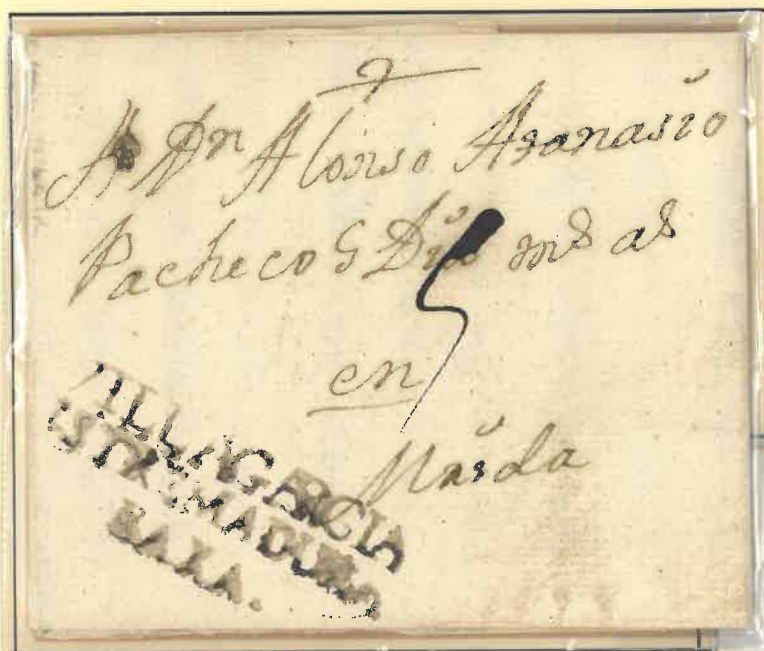 A Dn Alonso Atanasio
Pacheco G Dios ms as
5
en
Merida
VILLAGARCIA
ESTREMADURA
BAXA.